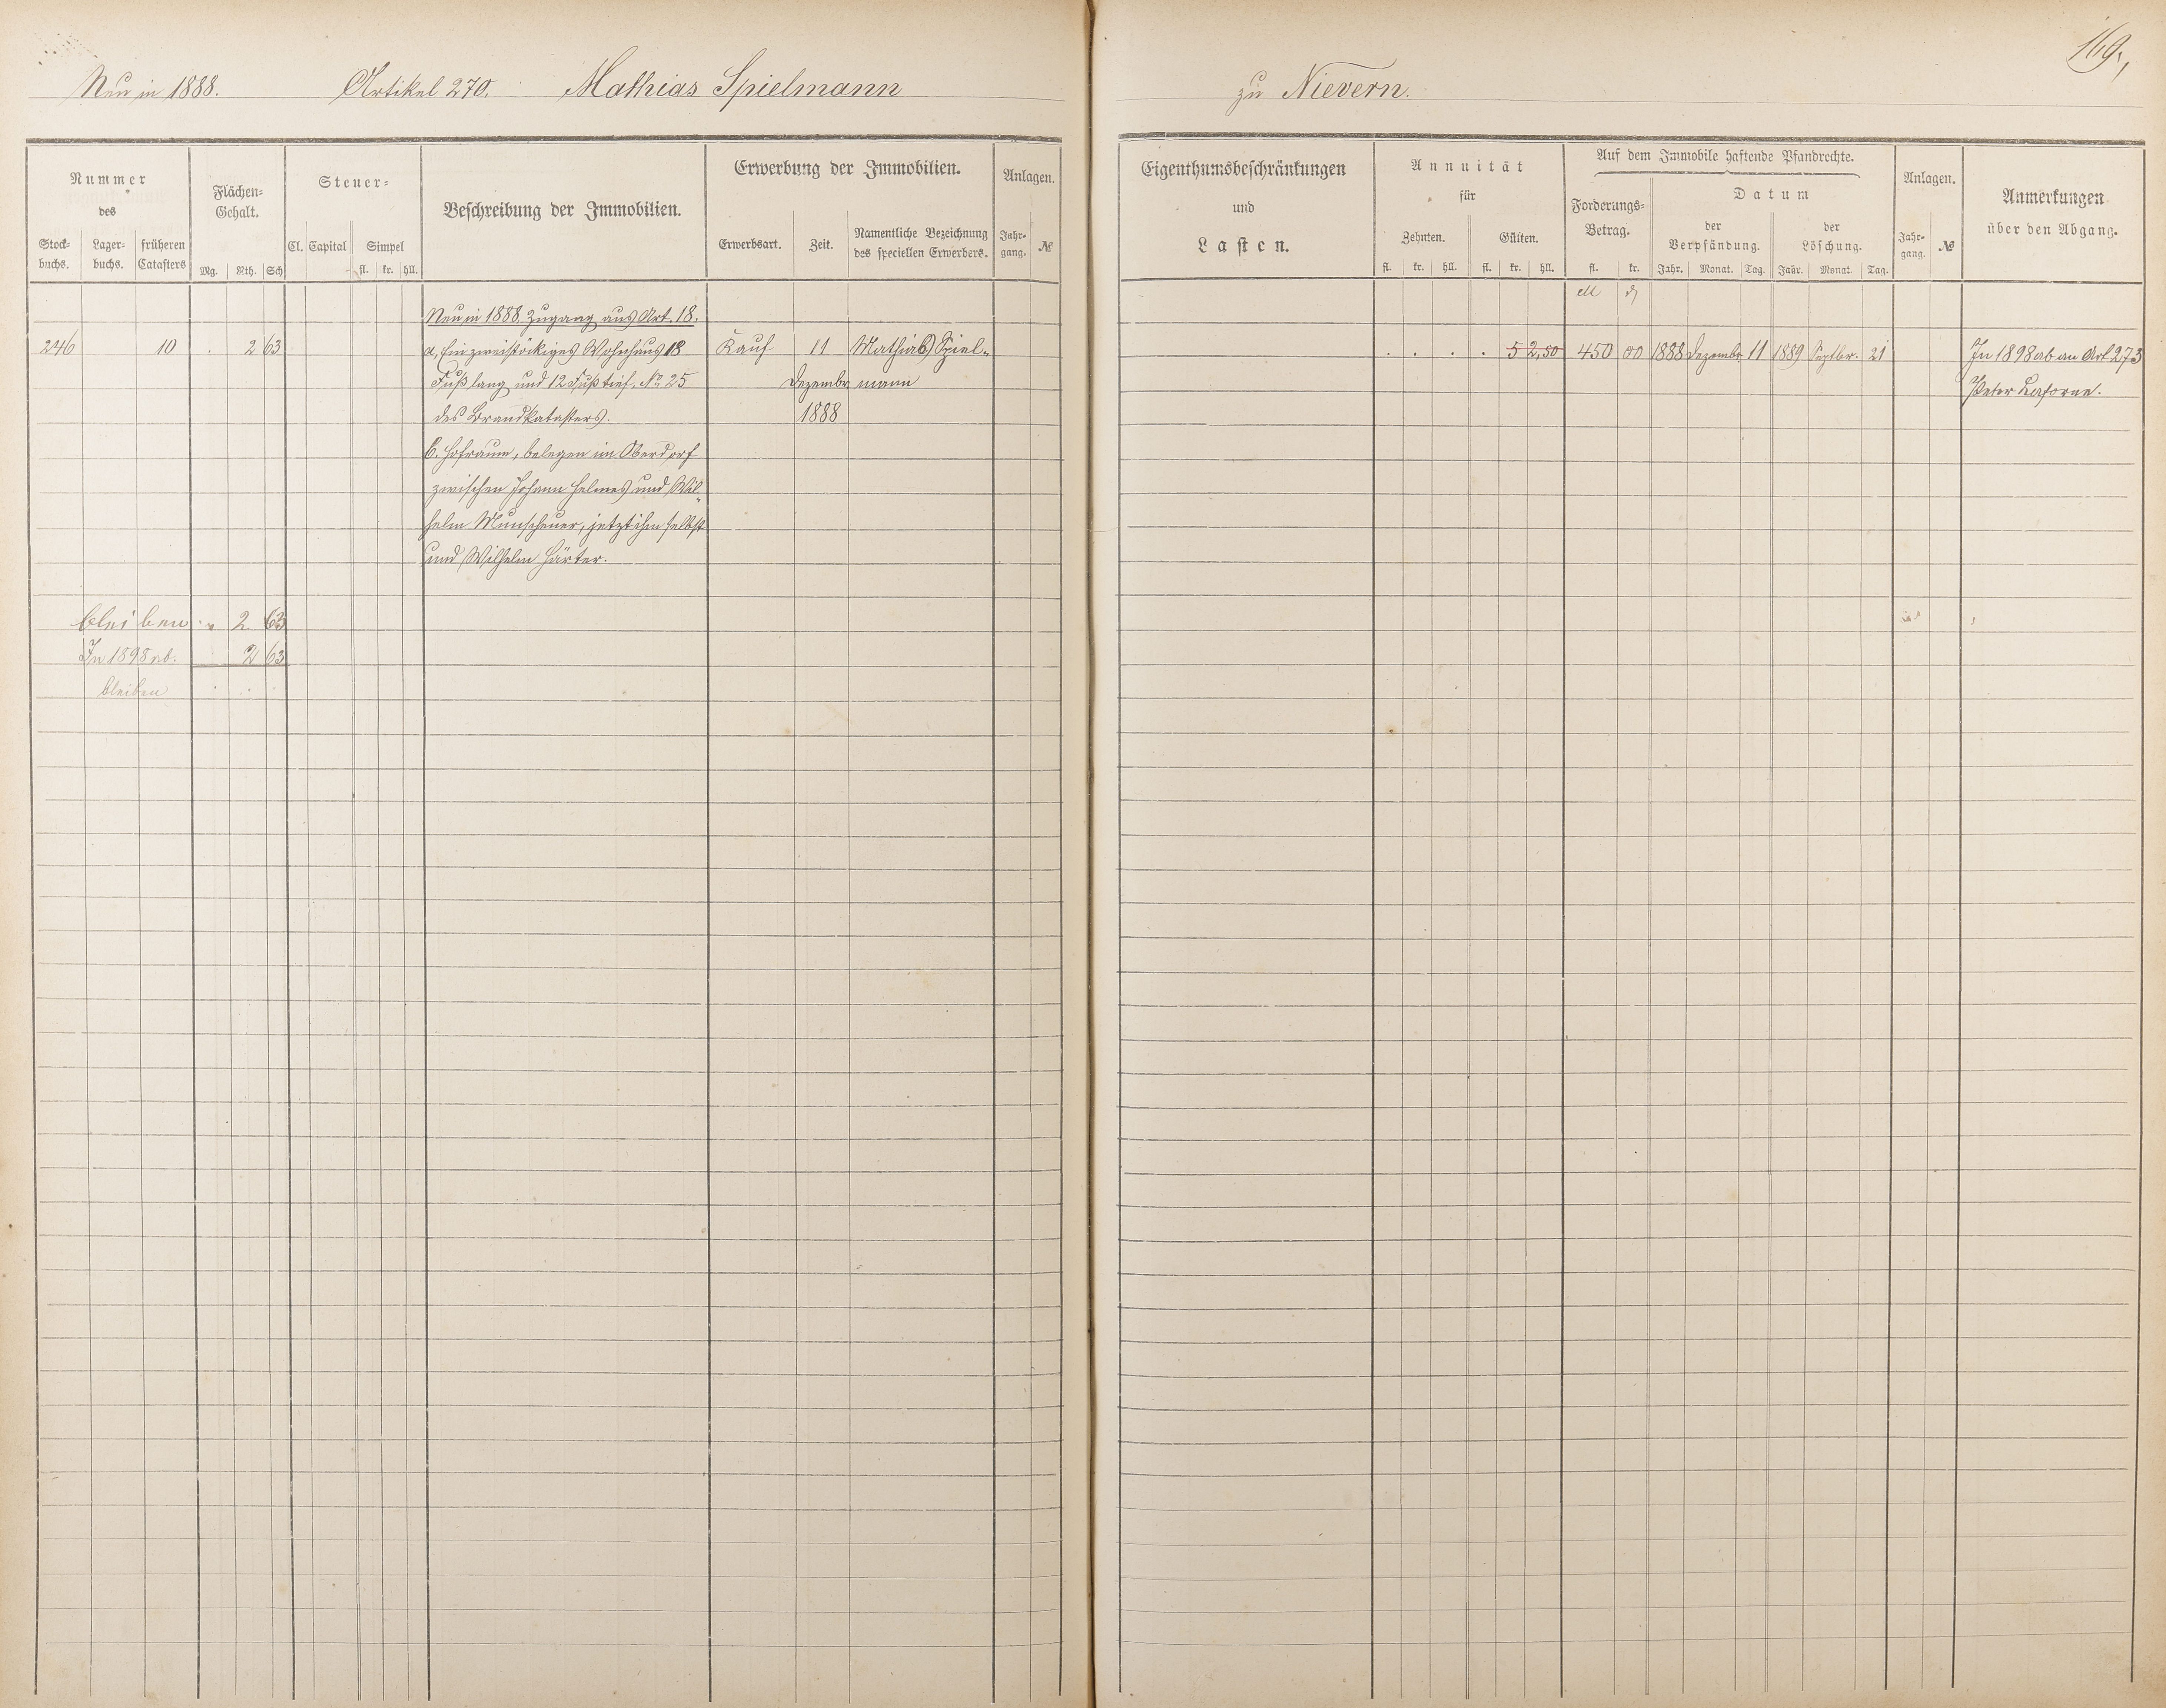 169.,
Neu in 1888. Artikel 270. Mathias Spielmann zu Nievern.
Nummer
des
Stock-
buchs.
Lager-
buchs.
früheren
Catasters
Flächen-
Gehalt.
Mg. Rth. Sch
Steuer-
Cl. Capital Simpel
fl. kr. hll.
Beschreibung der Immobilien.
Erwerbung der Immobilien.
Erwerbsart. Zeit.
Namentliche Bezeichnung
des speciellen Erwerbers.
Anlagen.
Jahr-
gang.
№
Eigenthumsbeschränkungen
und
Lasten.
Annuität
für
Zehnten. Gülten.
fl. kr. hll. fl. kr. hll.
Auf dem Immobile haftende Pfandrechte.
Forderungs-
Betrag.
fl. kr.
Datum
der
Verpfändung.
Jahr. Monat. Tag.
der
Löschung.
Jahr. Monat. Tag.
Anlagen.
Jahr-
gang.
№
Anmerkungen
über den Abgang.
Neu in 1888. Zugang aus Art. 18.
246 10 . 2 63 a, Ein zweistöckiges Wohnhaus 18 Kauf 11 Mathias Spiel-
Fuß lang und 12 Fuß tief. No. 25 Dezembr mann
des Brandkatasters. 1888
b. Hofraum, belegen im Oberdorf
zwischen Johann Helmes und Wil-
helm Munscheuer, jetzt ihm selbst
und Wilhelm Härter.
bleiben . 2 63
In 1898 ab. 2 63
bleiben . . .
M ₰
. . . . 5 2,50 450 00 1888 Dezembr 11 1889 Septbr. 21 In 1898 ab an Art 273
Peter Laforne.